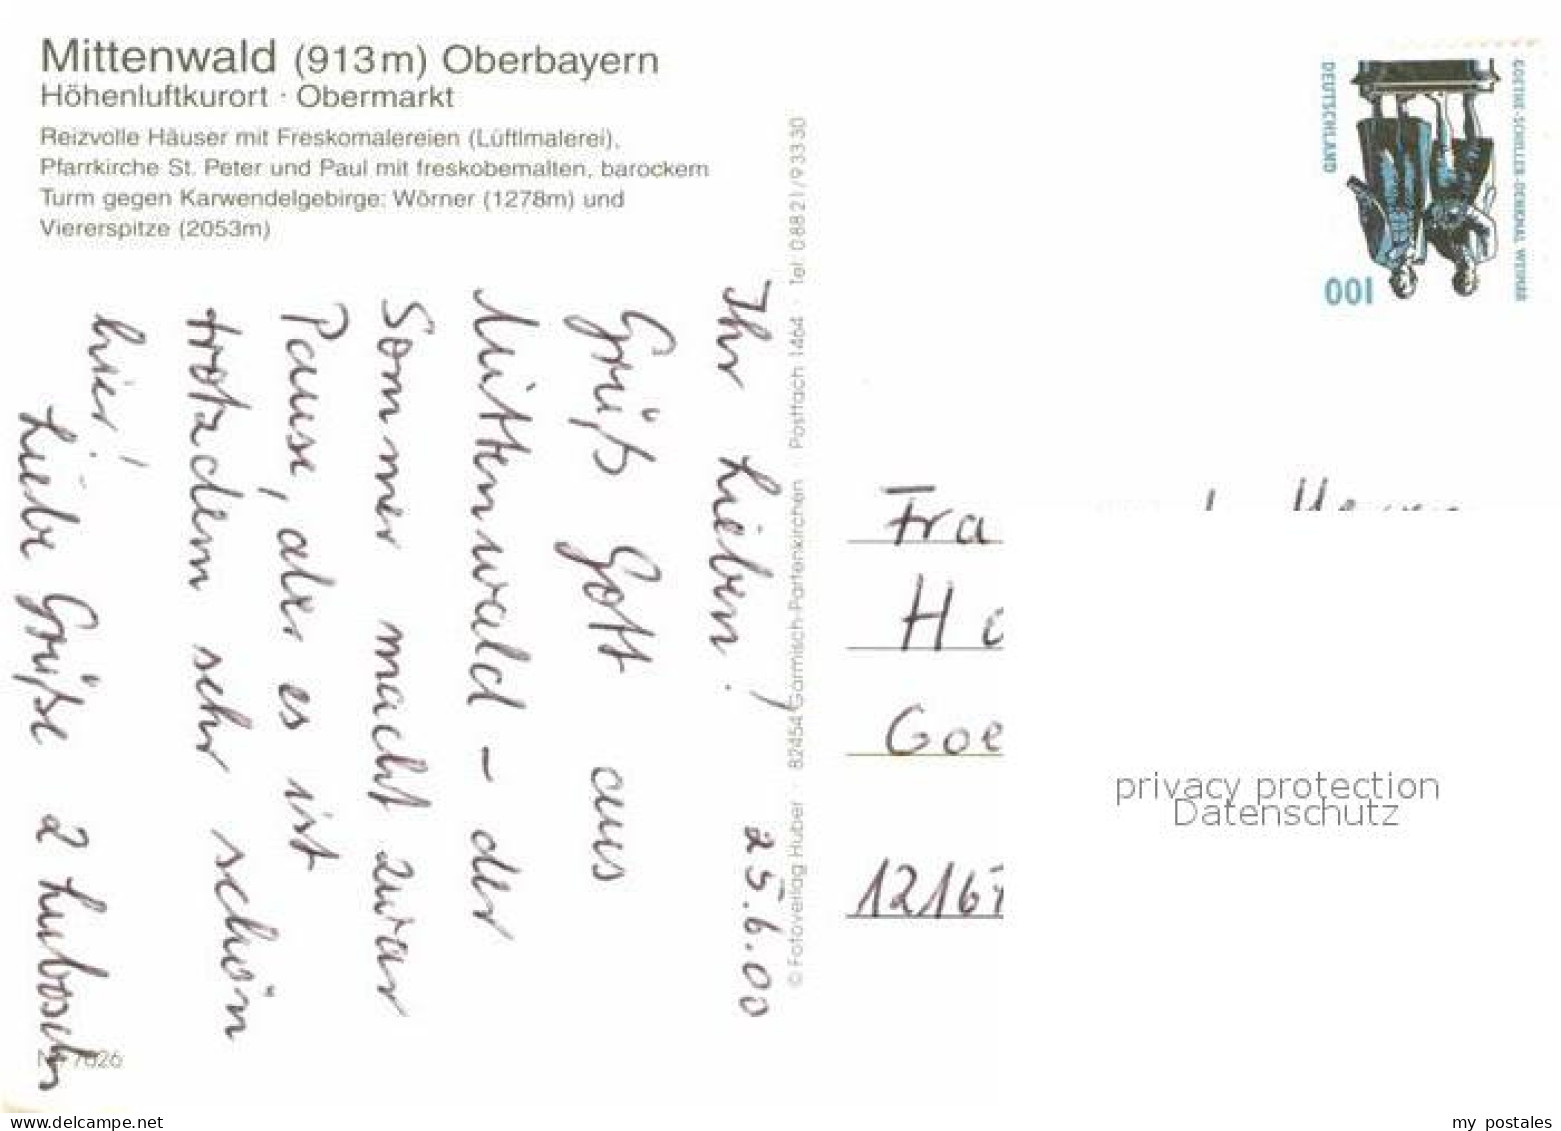 Mittenwald (913m) Oberbayern
Höhenluftkurort · Obermarkt
Reizvolle Häuser mit Freskomalereien (Lüftlmalerei),
Pfarrkirche St. Peter und Paul mit freskobemalten, barockem
Turm gegen Karwendelgebirge: Wörner (1278m) und
Viererspitze (2053m)
Ihr Lieben! 25.6.00
Grüß Gott aus
Mittenwald – der
Sommer macht zwar
Pause, aber es ist
trotzdem sehr schön
hier!
Liebe Grüße 2
7626
© Fotoverlag Huber · 82454 Garmisch-Partenkirchen · Postfach 1464 · Tel. 08821/93330
GOETHE-SCHILLER-DENKMAL WEIMAR
DEUTSCHLAND
100
Fra
H
Goe
1216
privacy protection
Datenschutz
www.delcampe.net
my_postales